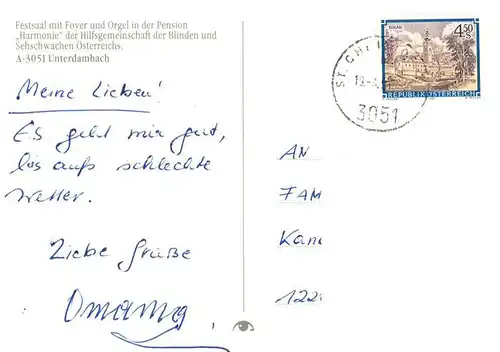 Festsaal mit Foyer und Orgel in der Pension
„Harmonie" der Hilfsgemeinschaft der Blinden und
Sehschwachen Österreichs.
A-3051 Unterdambach
Meine Lieben!
Es geht mir gut,
bis aufs schlechte
Wetter.
Liebe Grüße
Omama
4.50
S
REPUBLIK ÖSTERREICH
ST. CH
3051
AN
FAM
Kam
122